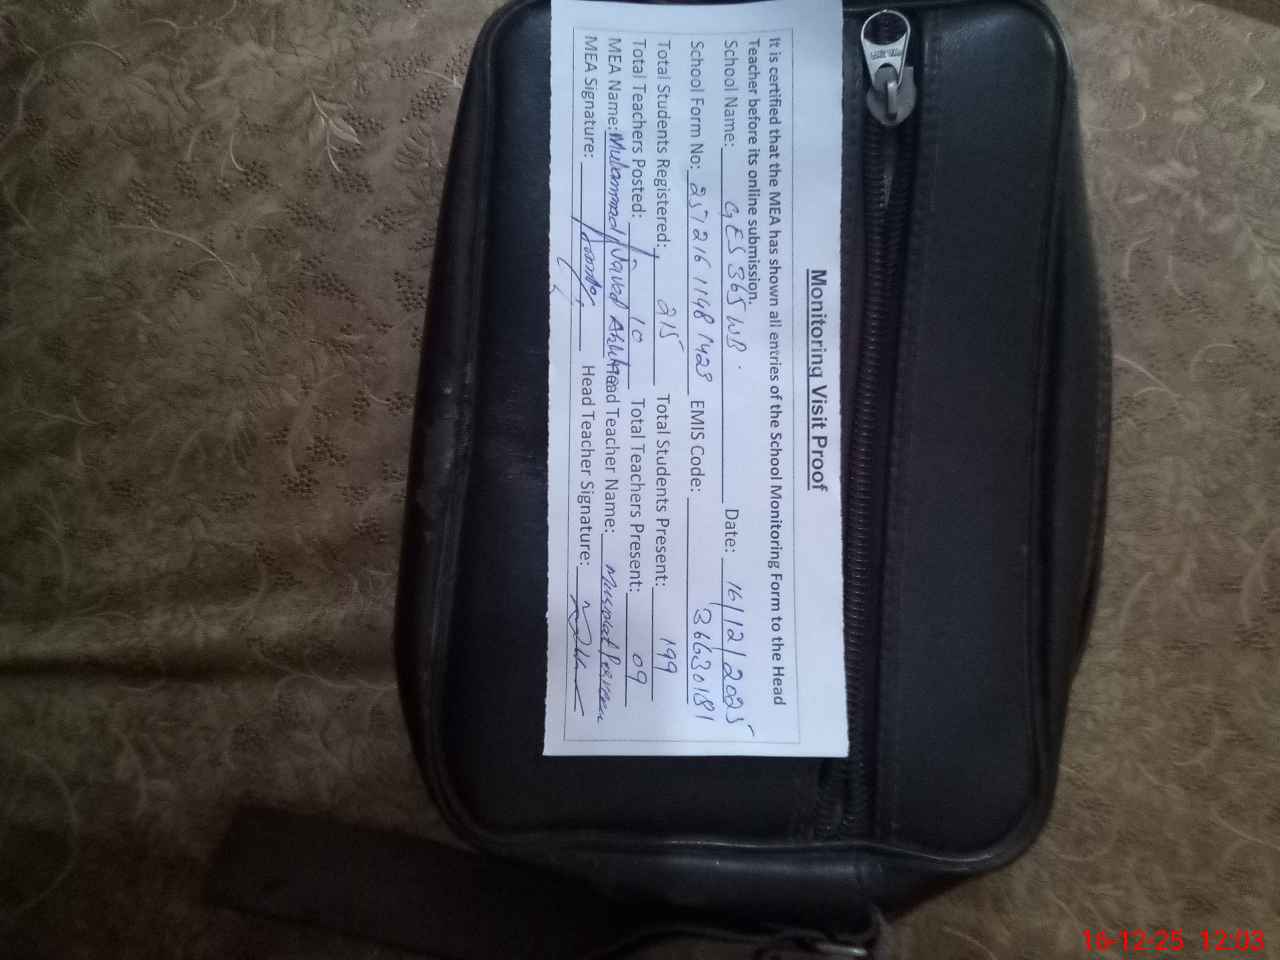 Monitoring Visit Proof
It is certified that the MEA has shown all entries of the School Monitoring Form to the Head
Teacher before its online submission.
School Name: GES 365 WB. Date: 16/12/2025
School Form No: 257216 1148 1423 EMIS Code: 36630181
Total Students Registered: 215 Total Students Present: 199
Total Teachers Posted: 10 Total Teachers Present: 09
MEA Name: Muhammad Javed Head Teacher Name: Musarat Parveen
MEA Signature: Head Teacher Signature:
16-12-25 12:03